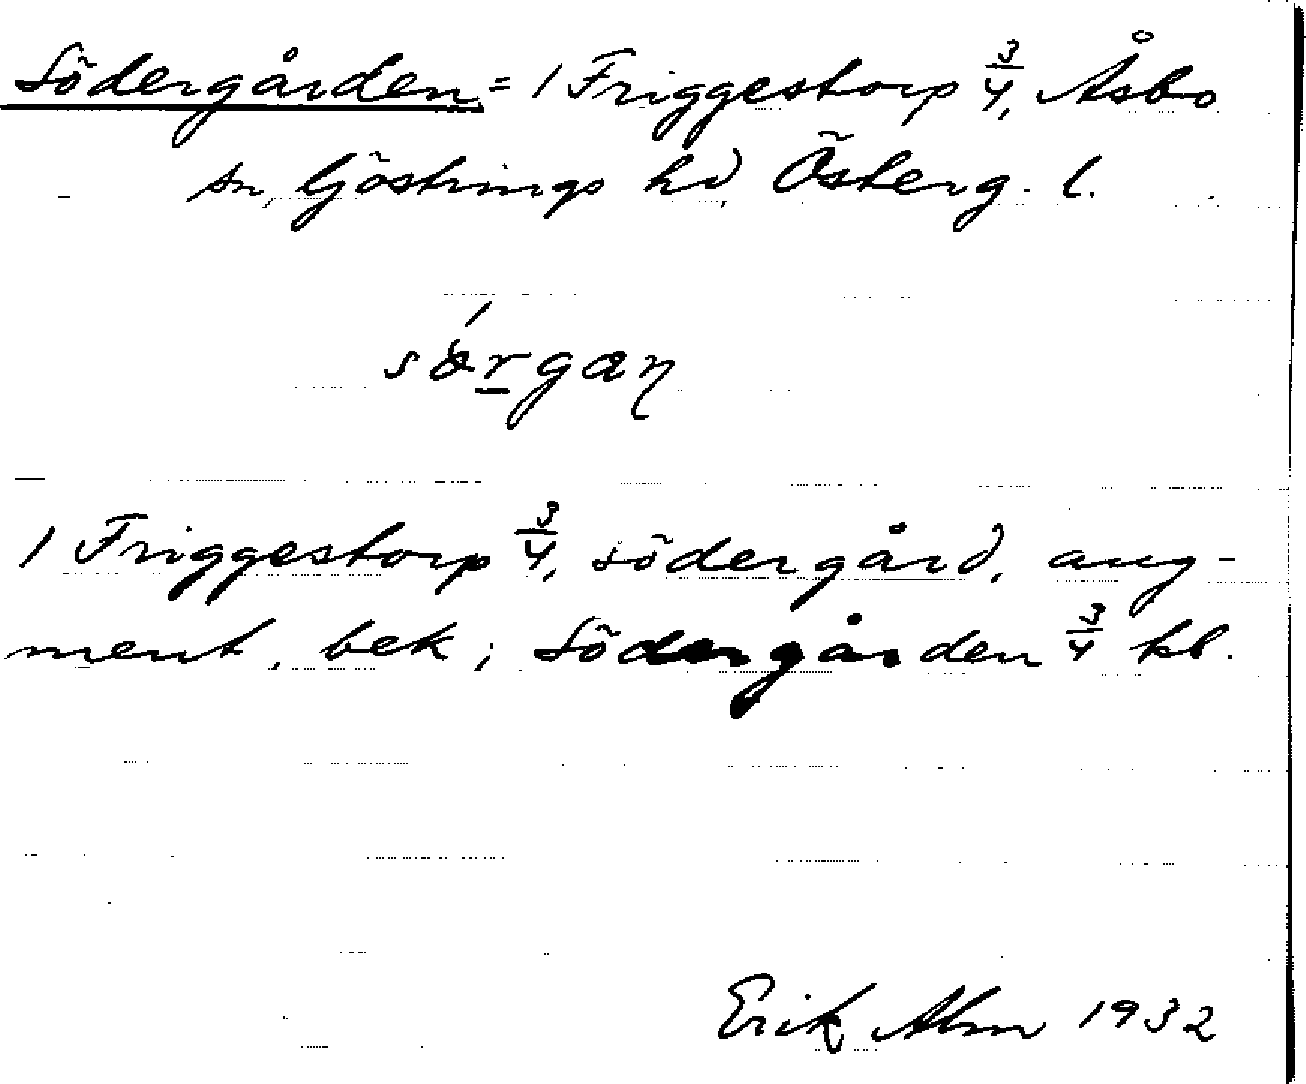 Södergården = 1 Friggestorp 3/4, Åsbo
sn, Göstrings hd, Österg. l.
sǿrgaɳ
1 Friggestorp 3/4, södergård, aug-
ment, bek; Södergården 3/4 kl.
Erik Alm 1932